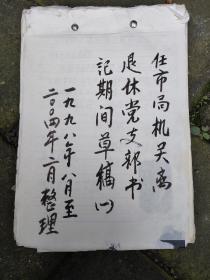 任市局机关离
退休党支部书
记期间草稿(一)
一九九八年八月至
二00四年二月整理